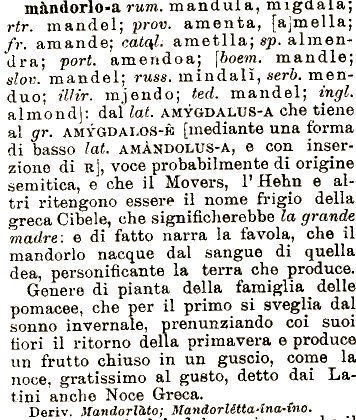 màndorlo-a rum. mandula, migdala;
rtr. mandel; prov. amenta, [a]mella;
fr. amande; catal. ametlla; sp. almen-
dra; port. amendoa; [boem. mandle;
slov. mandel; russ. mindalï, serb. men-
duo; illir. mjendo; ted. mandel; ingl.
almond]: dal lat. AMÝGDALUS-A che tiene
al gr. AMÝGDALOS-Ê [mediante una forma
di basso lat. AMÀNDOLUS-A, e con inser-
zione di R], voce probabilmente di origine
semitica, e che il Movers, l'Hehn e al-
tri ritengono essere il nome frigio della
greca Cibele, che significherebbe la grande
madre: e di fatto narra la favola, che il
mandorlo nacque dal sangue di quella
dea, personificante la terra che produce.
Genere di pianta della famiglia delle
pomacee, che per il primo si sveglia dal
sonno invernale, prenunziando coi suoi
fiori il ritorno della primavera e produce
un frutto chiuso in un guscio, come la
noce, gratissimo al gusto, detto dai La-
tini anche Noce Greca.
Deriv. Mandorlàto; Mandorlétta-ína-íno.